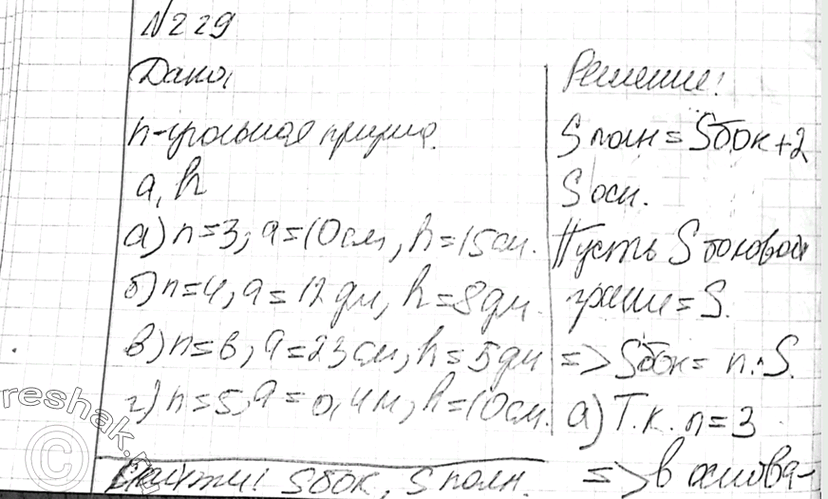 №229
Дано:
n-угольная призма.
a, h
а) n=3, a=10см, h=15см.
б) n=4, a=12дм, h=8дм.
в) n=6, a=23см, h=5дм
г) n=5, a=0,4м, h=10см.
Найти: Sбок, Sполн.
Решение:
Sполн=Sбок+2
Sосн.
Пусть Sбоковой
грани=S.
=> Sбок= n·S.
а) Т.к. n=3
=> в основа-
reshak.ru